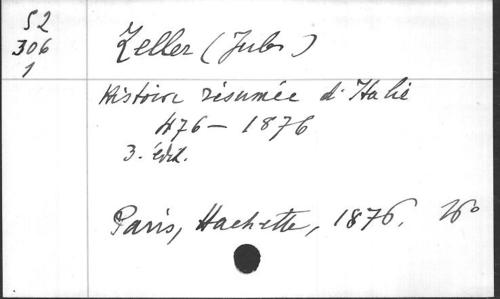 52
306
1
Zeller (Jules)
Histoire résumée d'Italie
476 - 1876
3. édit.
Paris, Hachette, 1876. 16°